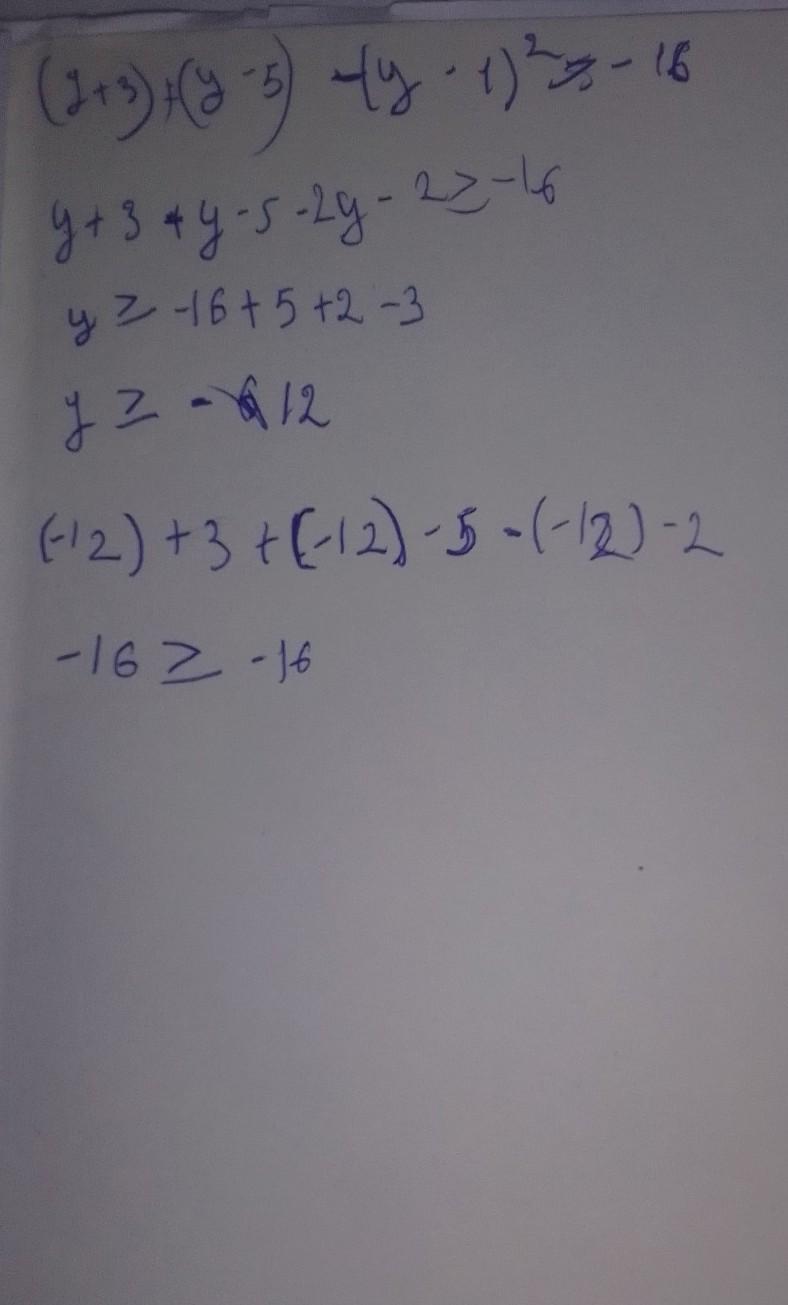 (y+3)+(y-5) -(y-1)² ≥ -16
y+3+y-5-2y-2≥-16
y ≥ -16+5+2-3
y ≥ -12
(-12)+3+(-12)-5-(-12)-2
-16 ≥ -16